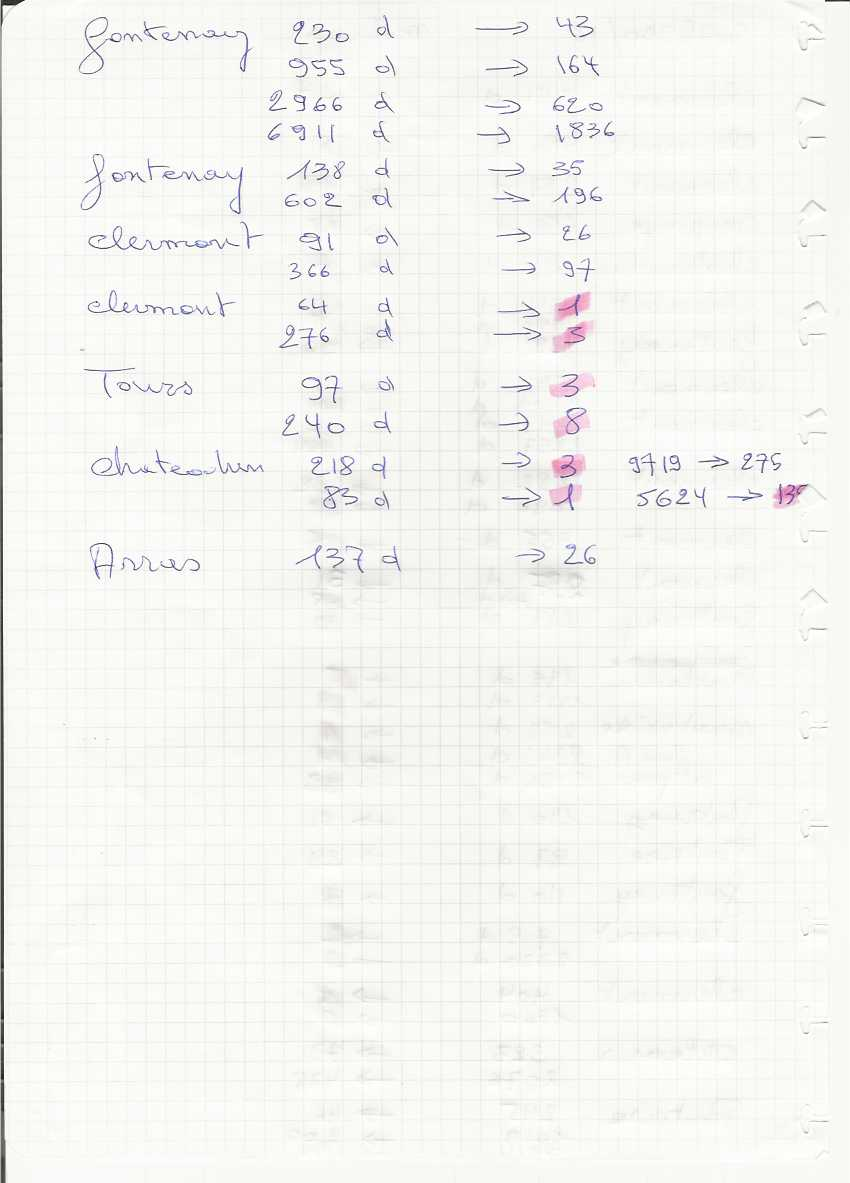 fontenay 230 d → 43
955 d → 164
2966 d → 620
6911 d → 1836
fontenay 138 d → 35
602 d → 196
clermont 91 d → 26
366 d → 97
clermont 64 d → 1
276 d → 3
Tours 97 d → 3
240 d → 8
Chateaudun 218 d → 3 9719 → 275
83 d → 1 5624 → 135
Arras 137 d → 26